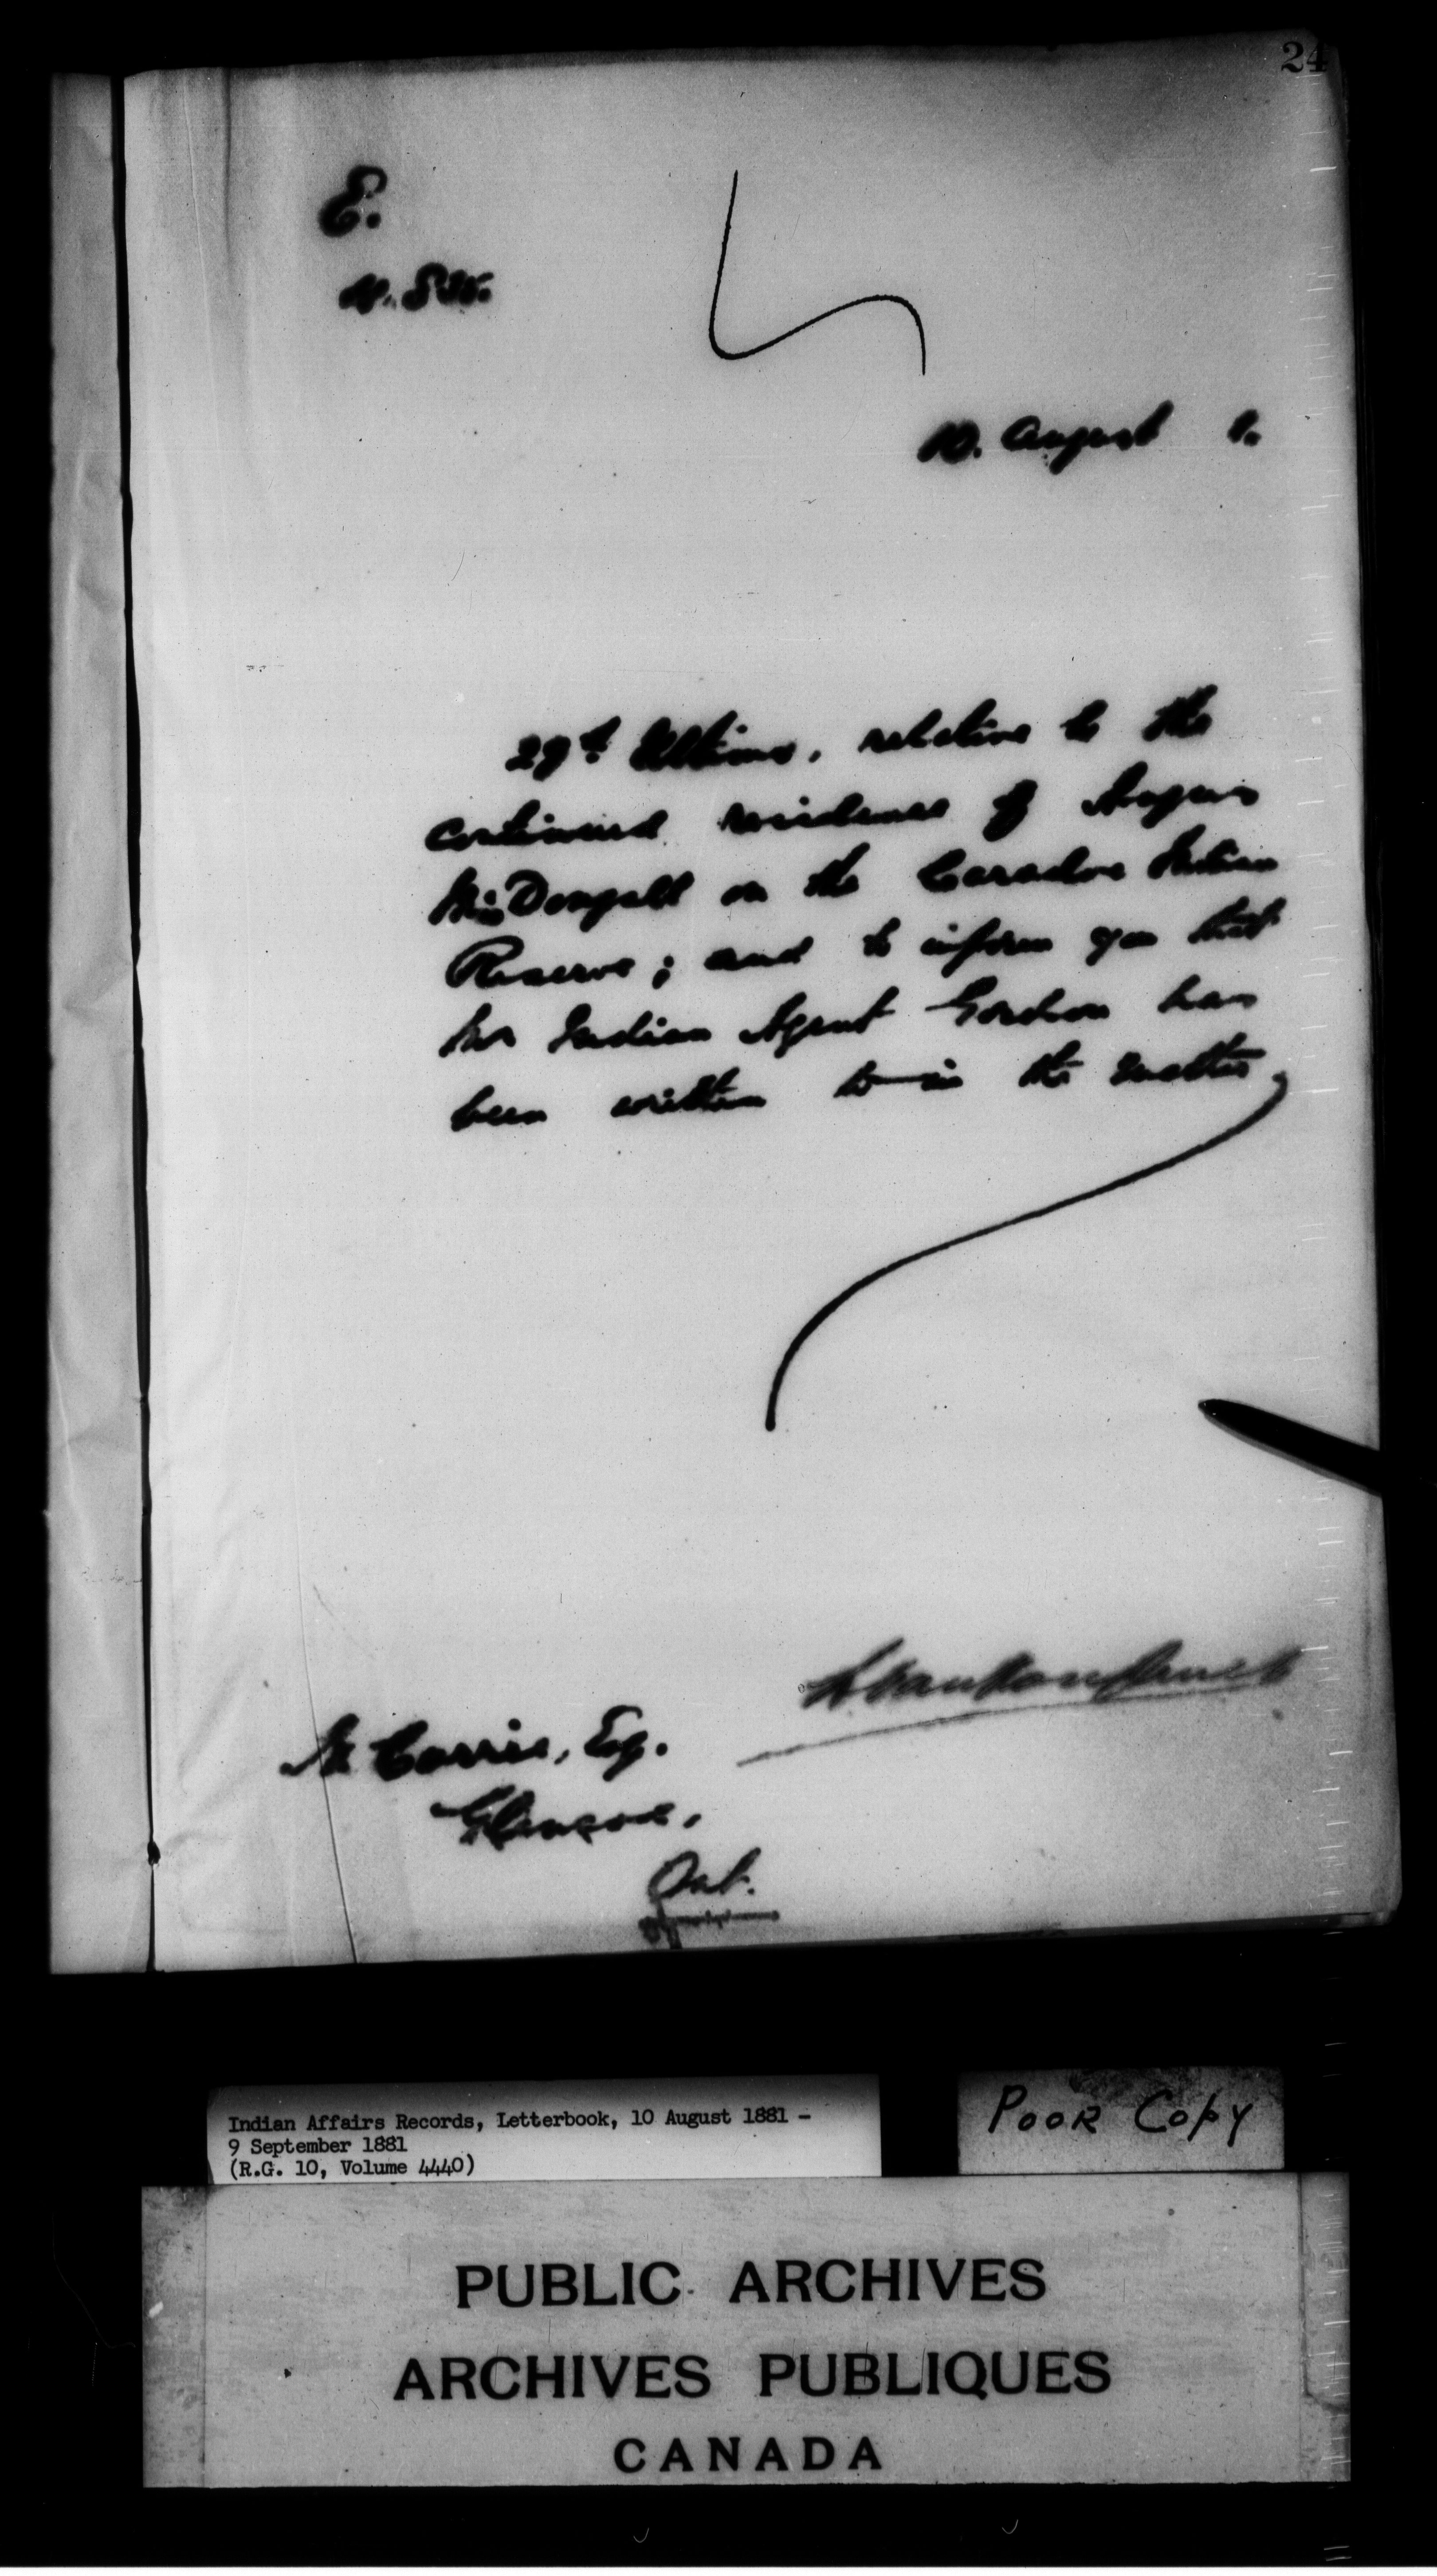 24
E.
10. August 1.
29th Ultimo, relative to the
continued residence of Angus
McDougall on the Caradoc Indian
Reserve; and to inform you that
Mr Indian Agent Gordon has
been written to in the matter.
L Vankoughnet
Currie, Esq.
Glencoe,
Ont.
Indian Affairs Records, Letterbook, 10 August 1881 –
9 September 1881
(R.G. 10, Volume 4440)
POOR COPY
PUBLIC ARCHIVES
ARCHIVES PUBLIQUES
CANADA